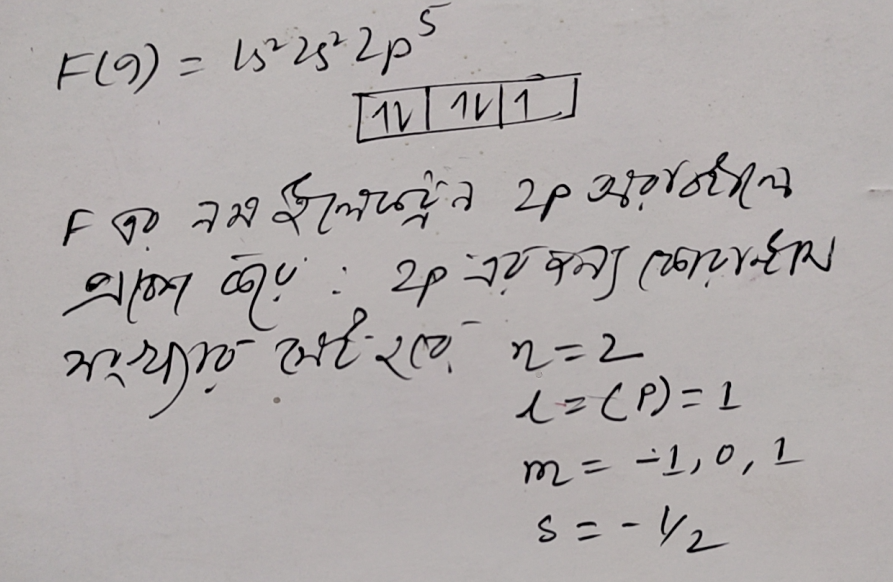 F(9) = 1s² 2s² 2p⁵
1↓ | 1↓ | 1
F এর নবম ইলেকট্রন 2p অরবিটালে
প্রবেশ করে : 2p এর জন্য কোয়ান্টাম
সংখ্যার সেট হবে n = 2
l = (P) = 1
m = -1, 0, 1
s = - 1/2